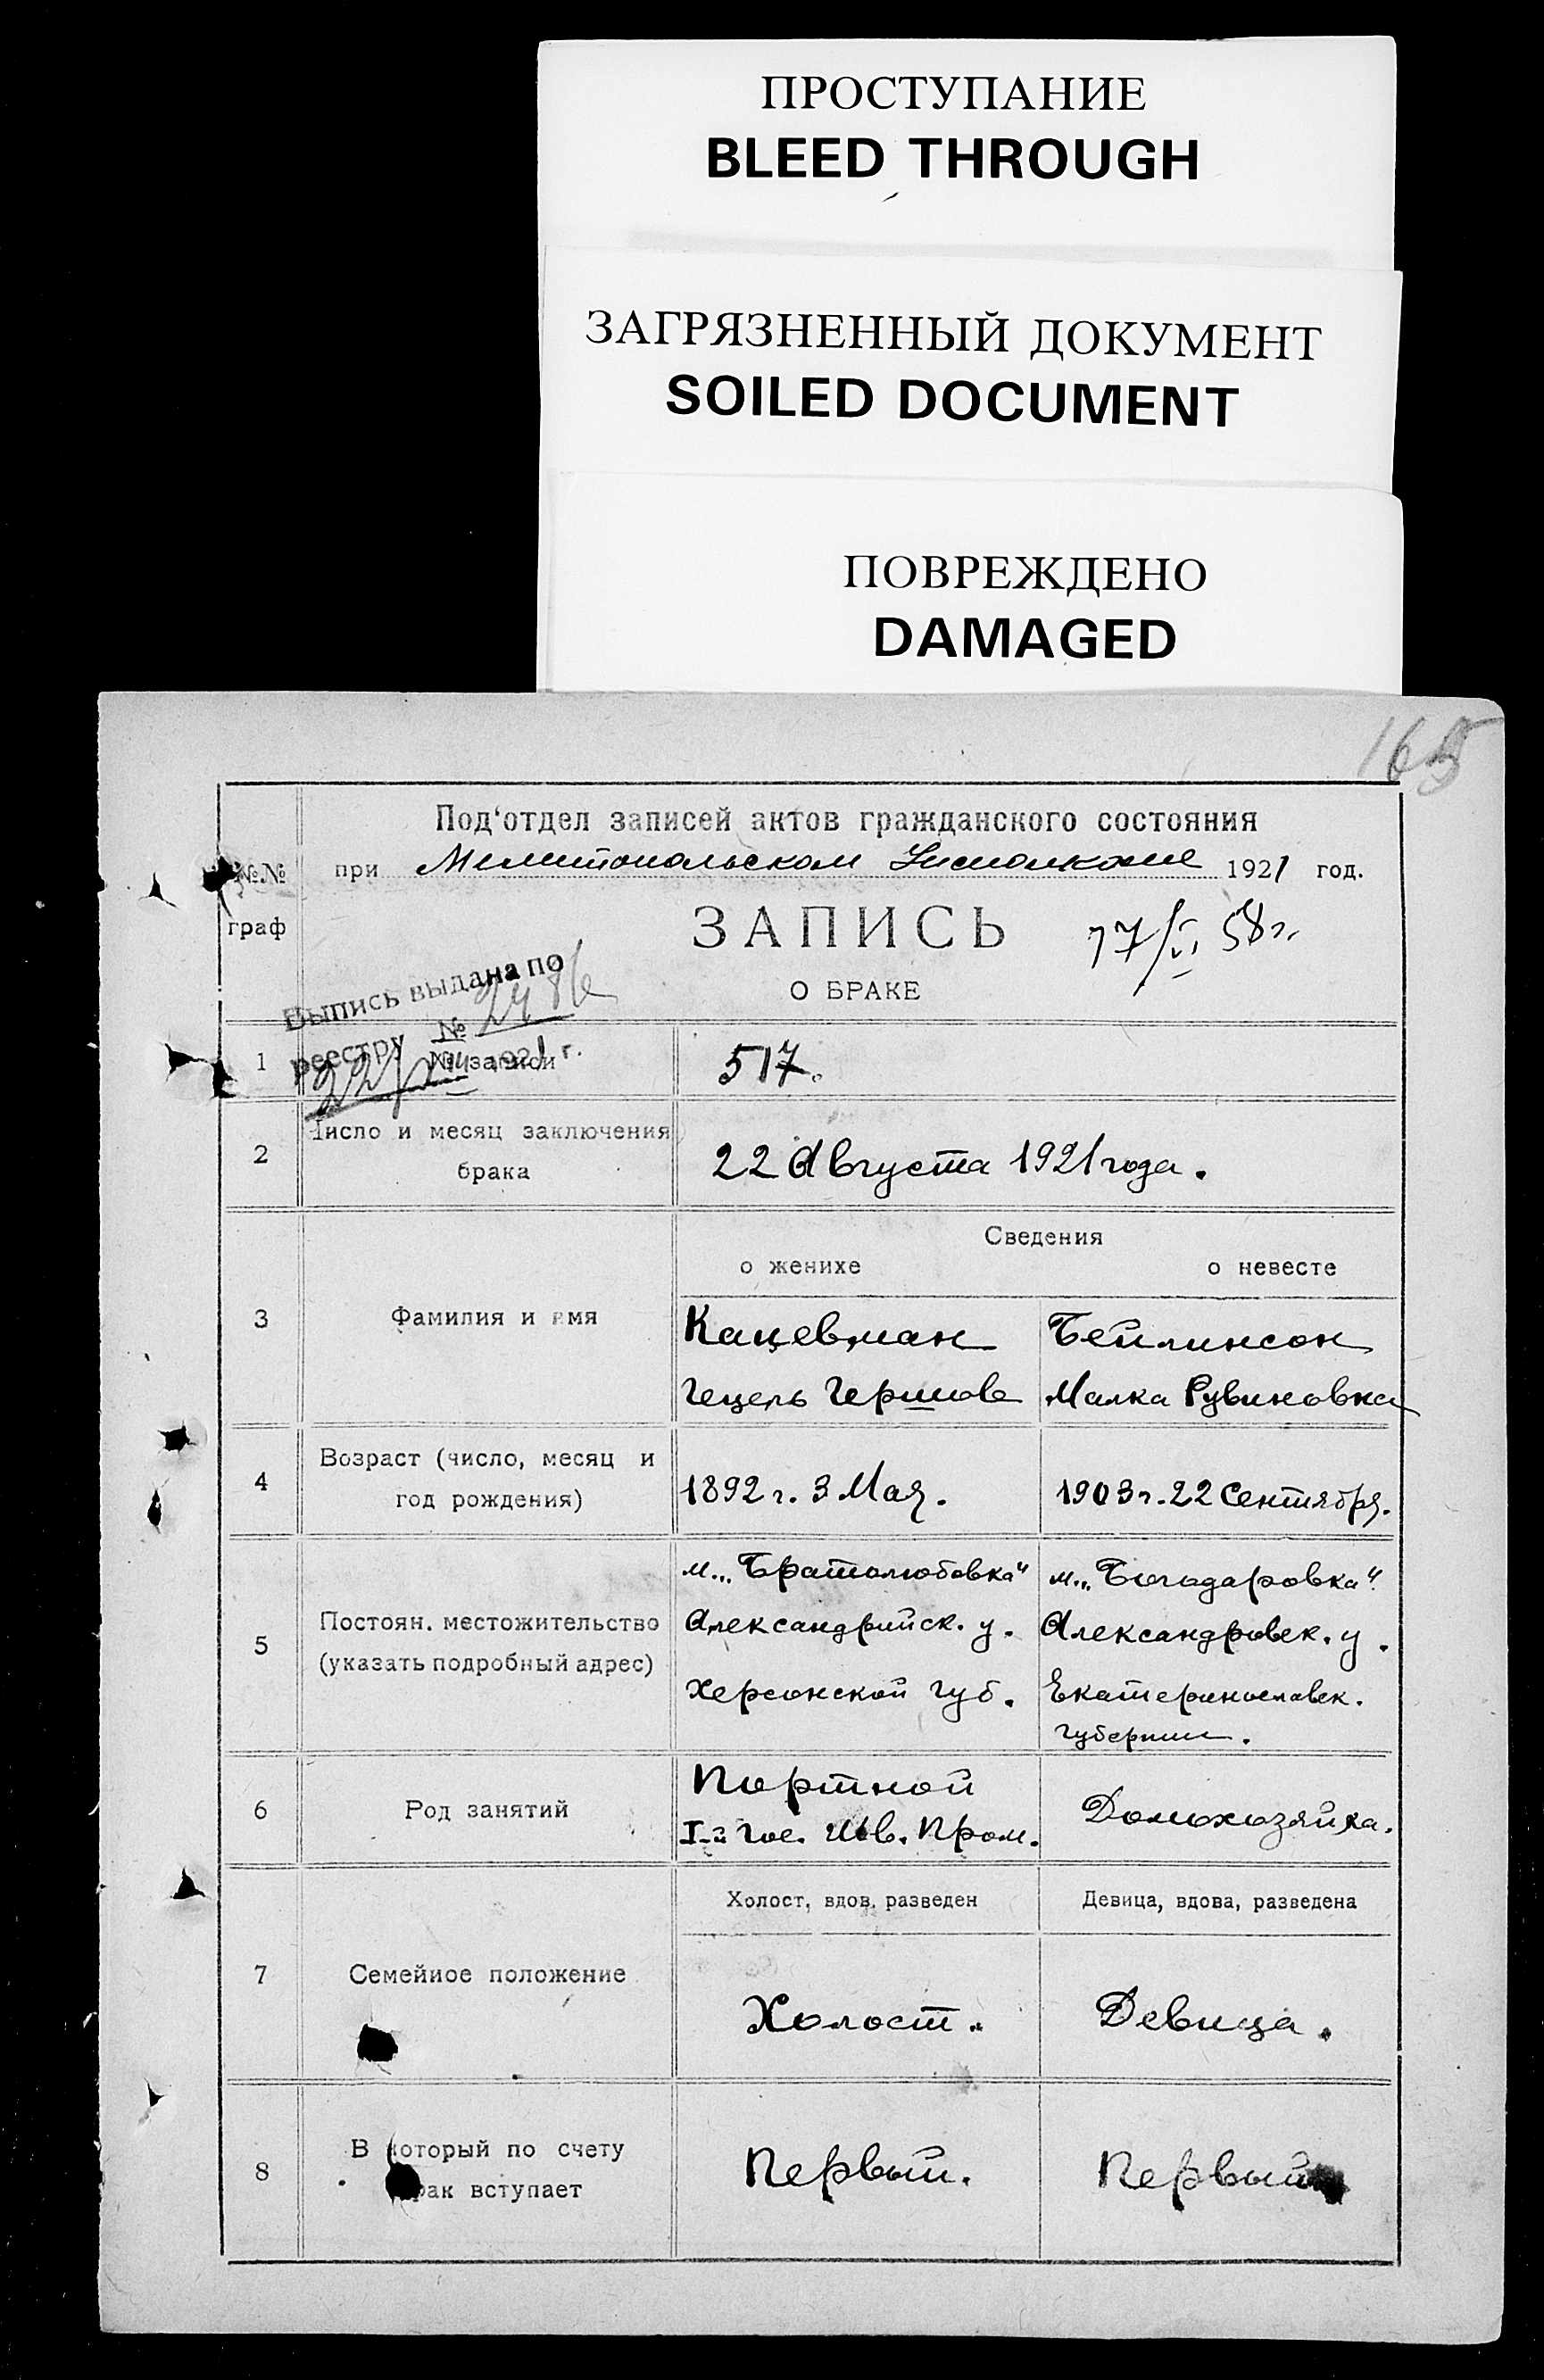 ПРОСТУПАНИЕ
BLEED THROUGH
ЗАГРЯЗНЕННЫЙ ДОКУМЕНТ
SOILED DOCUMENT
ПОВРЕЖДЕНО
DAMAGED
165
№№ граф
Под‘отдел записей актов гражданского состояния
при Мелитопольском Исполкоме 1921 год.
ЗАПИСЬ
О БРАКЕ
17/VI 58г.
Выпись выдана по
реестру №
1921 г.
1 № записи 517.
2 Число и месяц заключения брака 22 Августа 1921 года.
Сведения
о женихе о невесте
3 Фамилия и имя
Кацевман Бейлинсон
Гецель Гершов Малка Рувиновна
4 Возраст (число, месяц и год рождения)
1892 г. 3 Мая. 1903 г. 22 Сентября.
5 Постоян. местожительство
(указать подробный адрес)
м. „Братолюбовка“ м. „Богодаровка“.
Александрийск. у. Александровск. у.
Херсонской губ. Екатеринославск.
губернии.
6 Род занятий
Портной Домохозяйка.
I-й Гос. Шв. Пром.
Холост, вдов, разведен Девица, вдова, разведена
7 Семейное положение
Холост. Девица.
8 В который по счету
брак вступает
Первый. Первый